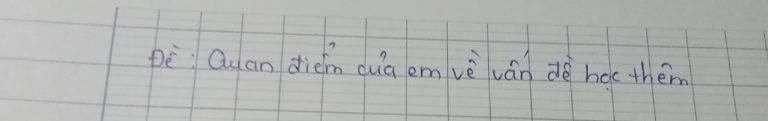 Đề: Quan điểm của em về vấn đề học thêm